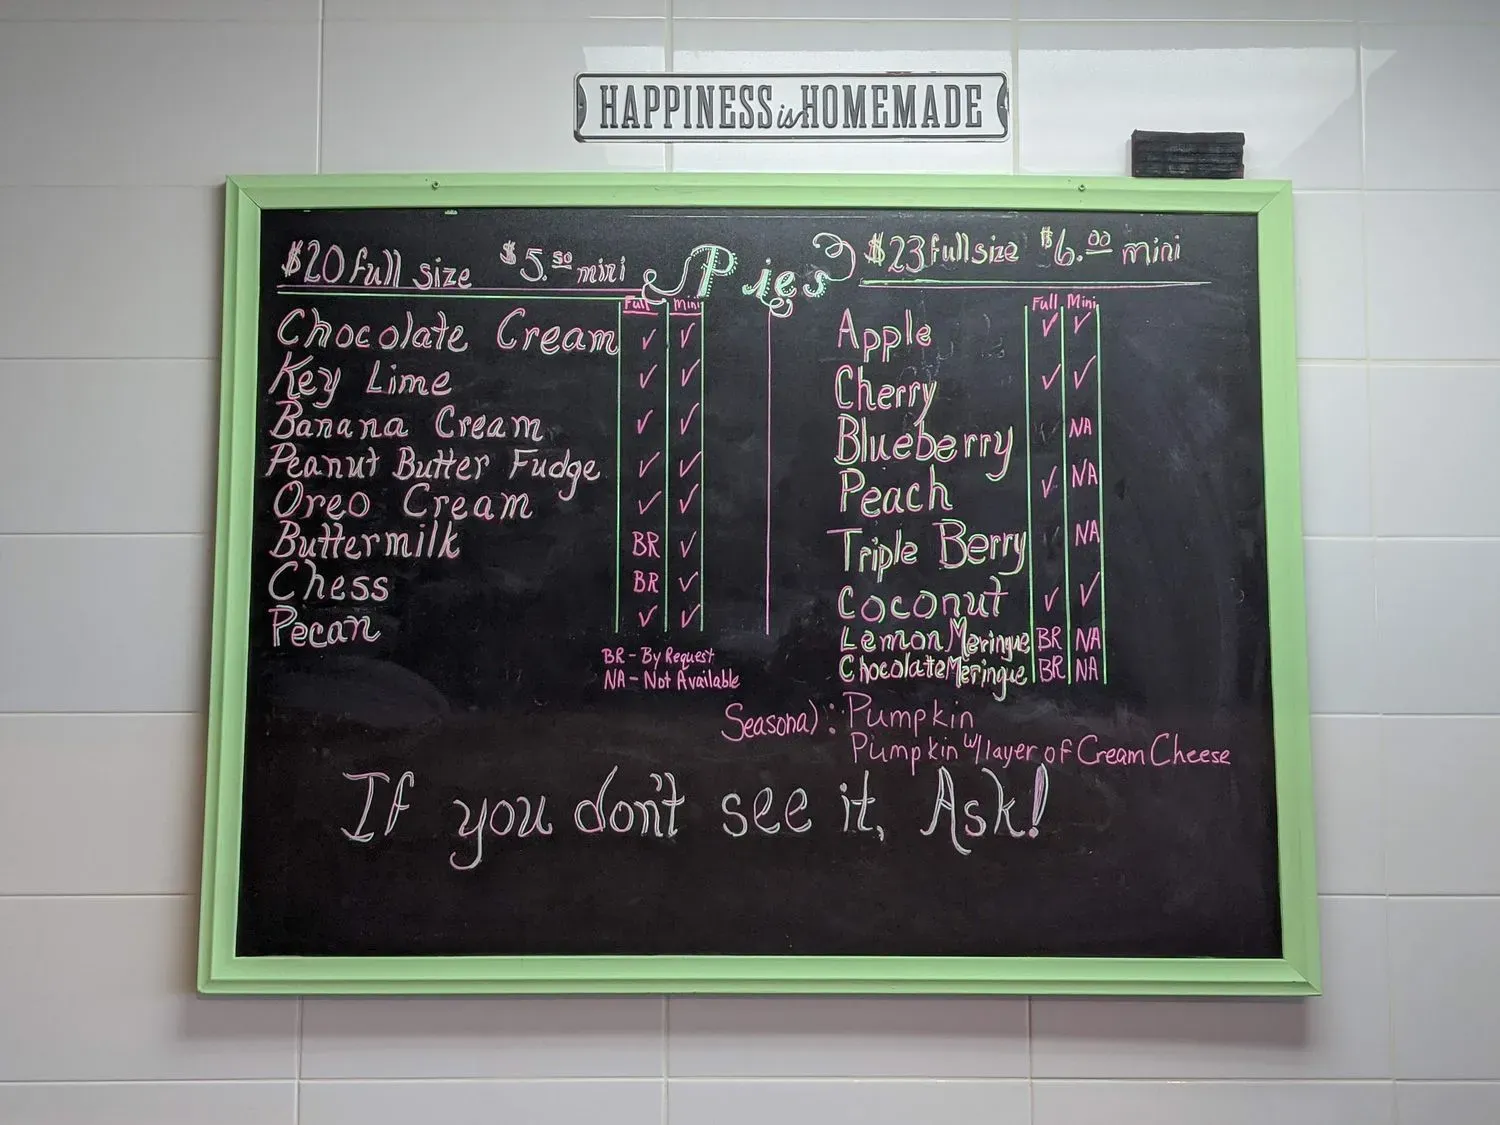 HAPPINESS is HOMEMADE
Pies
$20 full size $5.50 mini
Full Mini
Chocolate Cream ✓ ✓
Key Lime ✓ ✓
Banana Cream ✓ ✓
Peanut Butter Fudge ✓ ✓
Oreo Cream ✓ ✓
Buttermilk BR ✓
Chess BR ✓
Pecan ✓ ✓
BR - By Request
NA - Not Available
$23 full size $6.00 mini
Full Mini
Apple ✓ ✓
Cherry ✓ ✓
Blueberry NA
Peach ✓ NA
Triple Berry NA
Coconut ✓ ✓
Lemon Meringue BR NA
Chocolate Meringue BR NA
Seasonal: Pumpkin
Pumpkin w/ layer of Cream Cheese
If you don't see it, Ask!